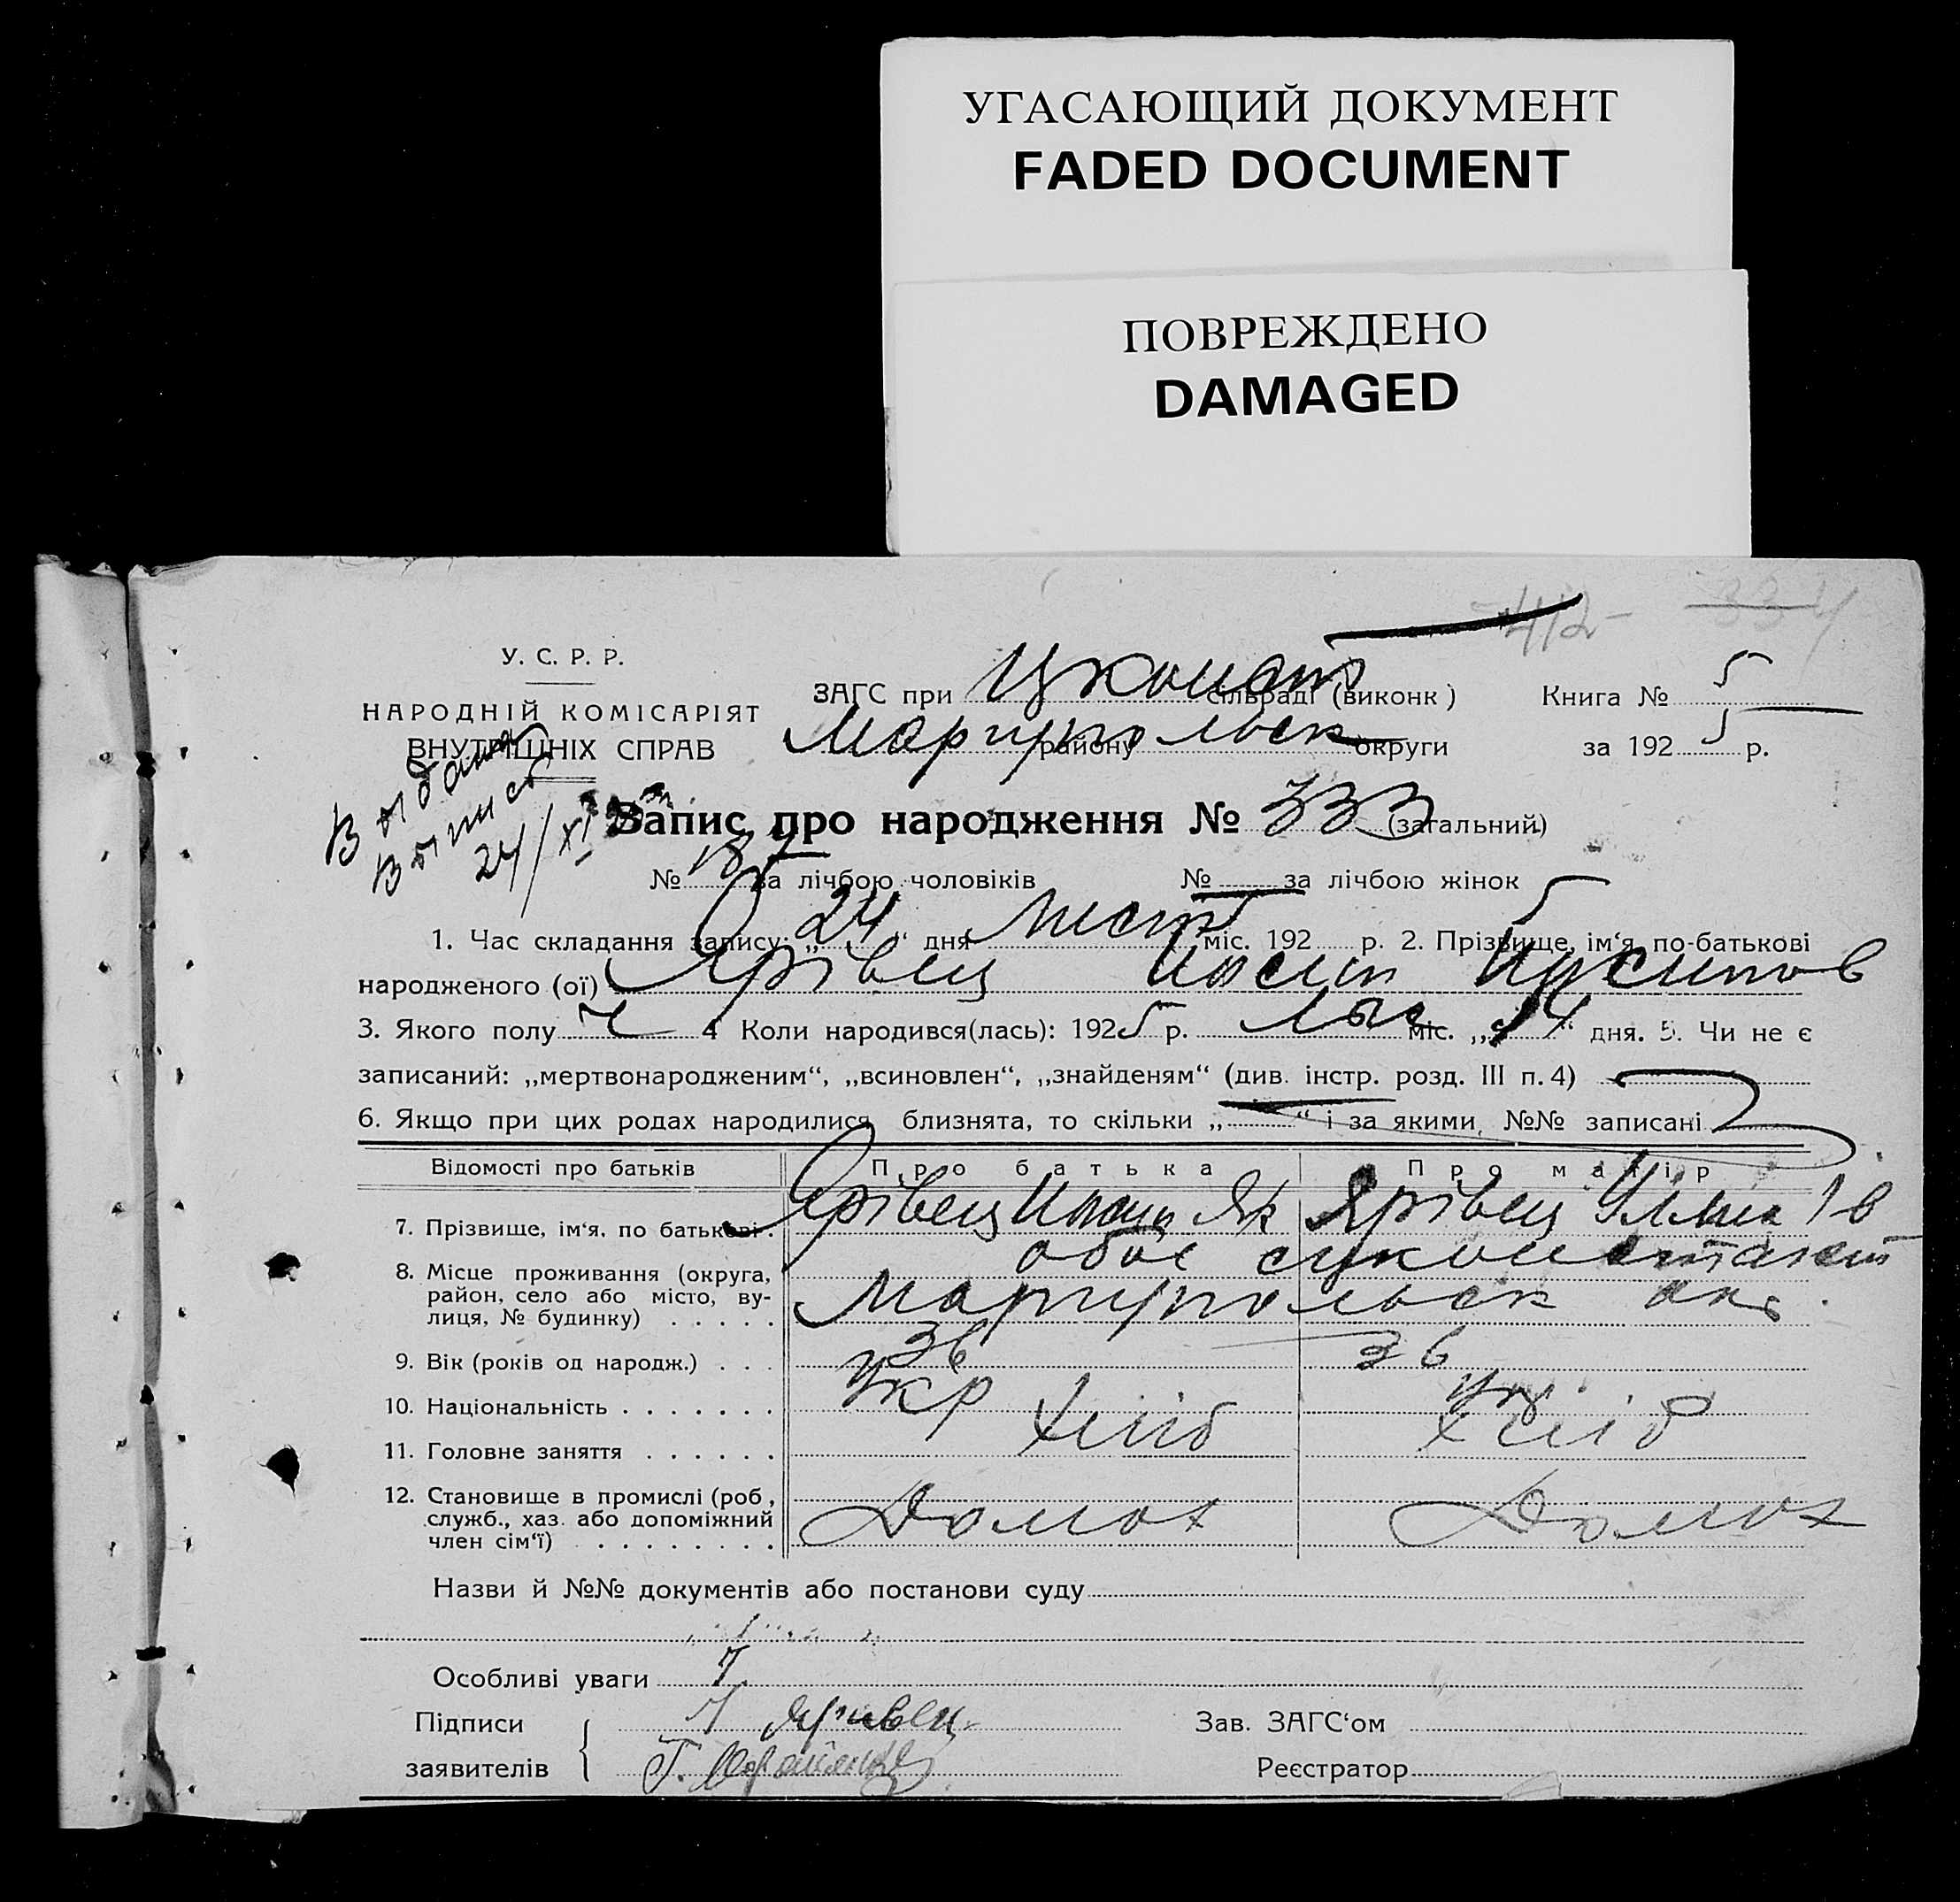 УГАСАЮЩИЙ ДОКУМЕНТ
FADED DOCUMENT
ПОВРЕЖДЕНО
DAMAGED
412 334
У. С. Р. Р.
НАРОДНІЙ КОМІСАРІЯТ
ВНУТРІШНІХ СПРАВ
ЗАГС при сільраді (виконк ) Книга № 5
Мариупольск району округи за 1925 р.
Выдана
выпись
24/XI
Запис про народження № 333 (загальний)
№ 187 за лічбою чоловіків № за лічбою жінок
1. Час складання запису: „24“ дня Лист міс. 1925 р. 2. Прізвище, ім‘я, по-батькові
народженого (ої) Ярівец Иосип Иосипов
3. Якого полу ч 4 Коли народився(лась): 1925 р. міс. „14“ дня. 5. Чи не є
записаний: „мертвонародженим“, „всиновлен“, „знайденям“ (див. інстр. розд. III п. 4)
6. Якщо при цих родах народилися близнята, то скільки „ “ і за якими, №№ записані
Відомості про батьків Про батька Про матір
7. Прізвище, ім‘я, по батькові . Ярівец Иосип Як Ярівец Ів
8. Місце проживання (округа, район, село або місто, вулиця, № будинку) . . . . . обоє
Мариупольск окр.
9. Вік (років од народж.) . . . 36 36
10. Національність . . . . . . . Укр Укр
11. Головне заняття . . . . . . Хліб Хліб
12. Становище в промислі (роб , служб., хаз. або допоміжний член сім‘ї) . . . . . . . . Домох Домох
Назви й №№ документів або постанови суду
Особливі уваги
Підписи Ярівец
заявителів Г.
Зав. ЗАГС‘ом
Реєстратор